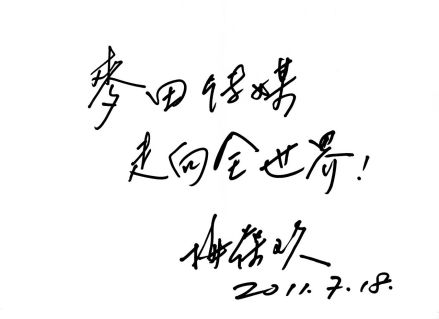 麥田传媒
走向全世界!
梅葆玖
2011.7.18.